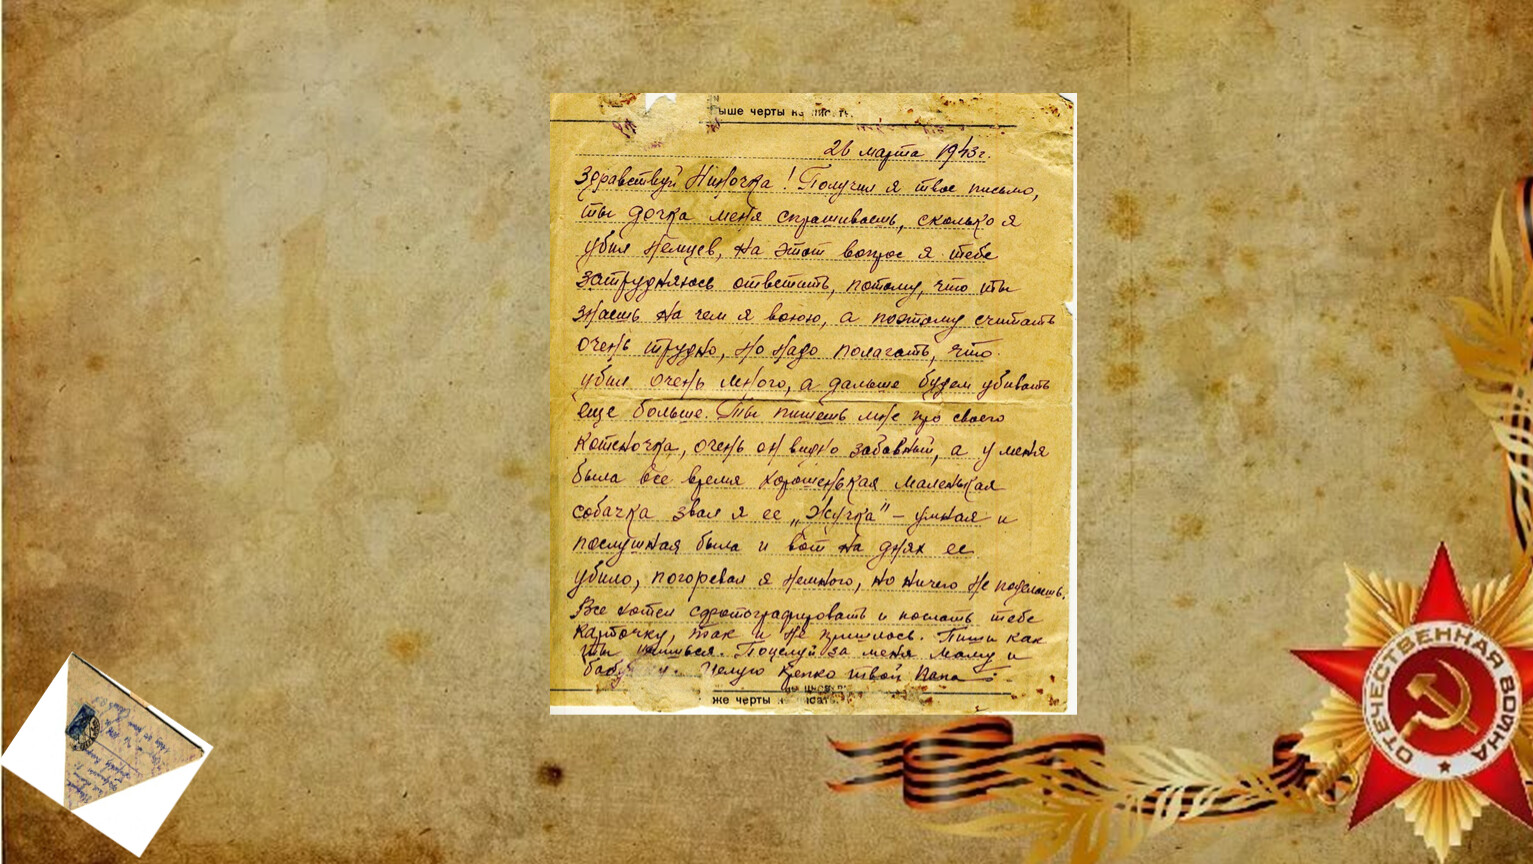 ыше черты не писать.
26 марта 1943г.
Здравствуй Ниночка! Получил я твое письмо,
ты дочка меня спрашиваешь, сколько я
убил немцев, на этот вопрос я тебе
затрудняюсь ответить, потому, что ты
знаешь на чем я воюю, а поэтому считать
очень трудно, но надо полагать, что
убил очень много, а дальше будем убивать
еще больше. Ты пишешь мне про своего
котеночка, очень он видно забавный, а у меня
была все время хорошенькая маленькая
собачка звал я ее „Жучка" – умная и
послушная была и вот на днях ее
убило, погоревал я немного, но ничего не поделаешь.
Все хотел сфотографировать и послать тебе
карточку, так и не пришлось. Пиши как
ты учишься. Поцелуй за меня маму и
бабушку. Целую крепко твой Папа
же черты не писать.
ОТЕЧЕСТВЕННАЯ ВОЙНА